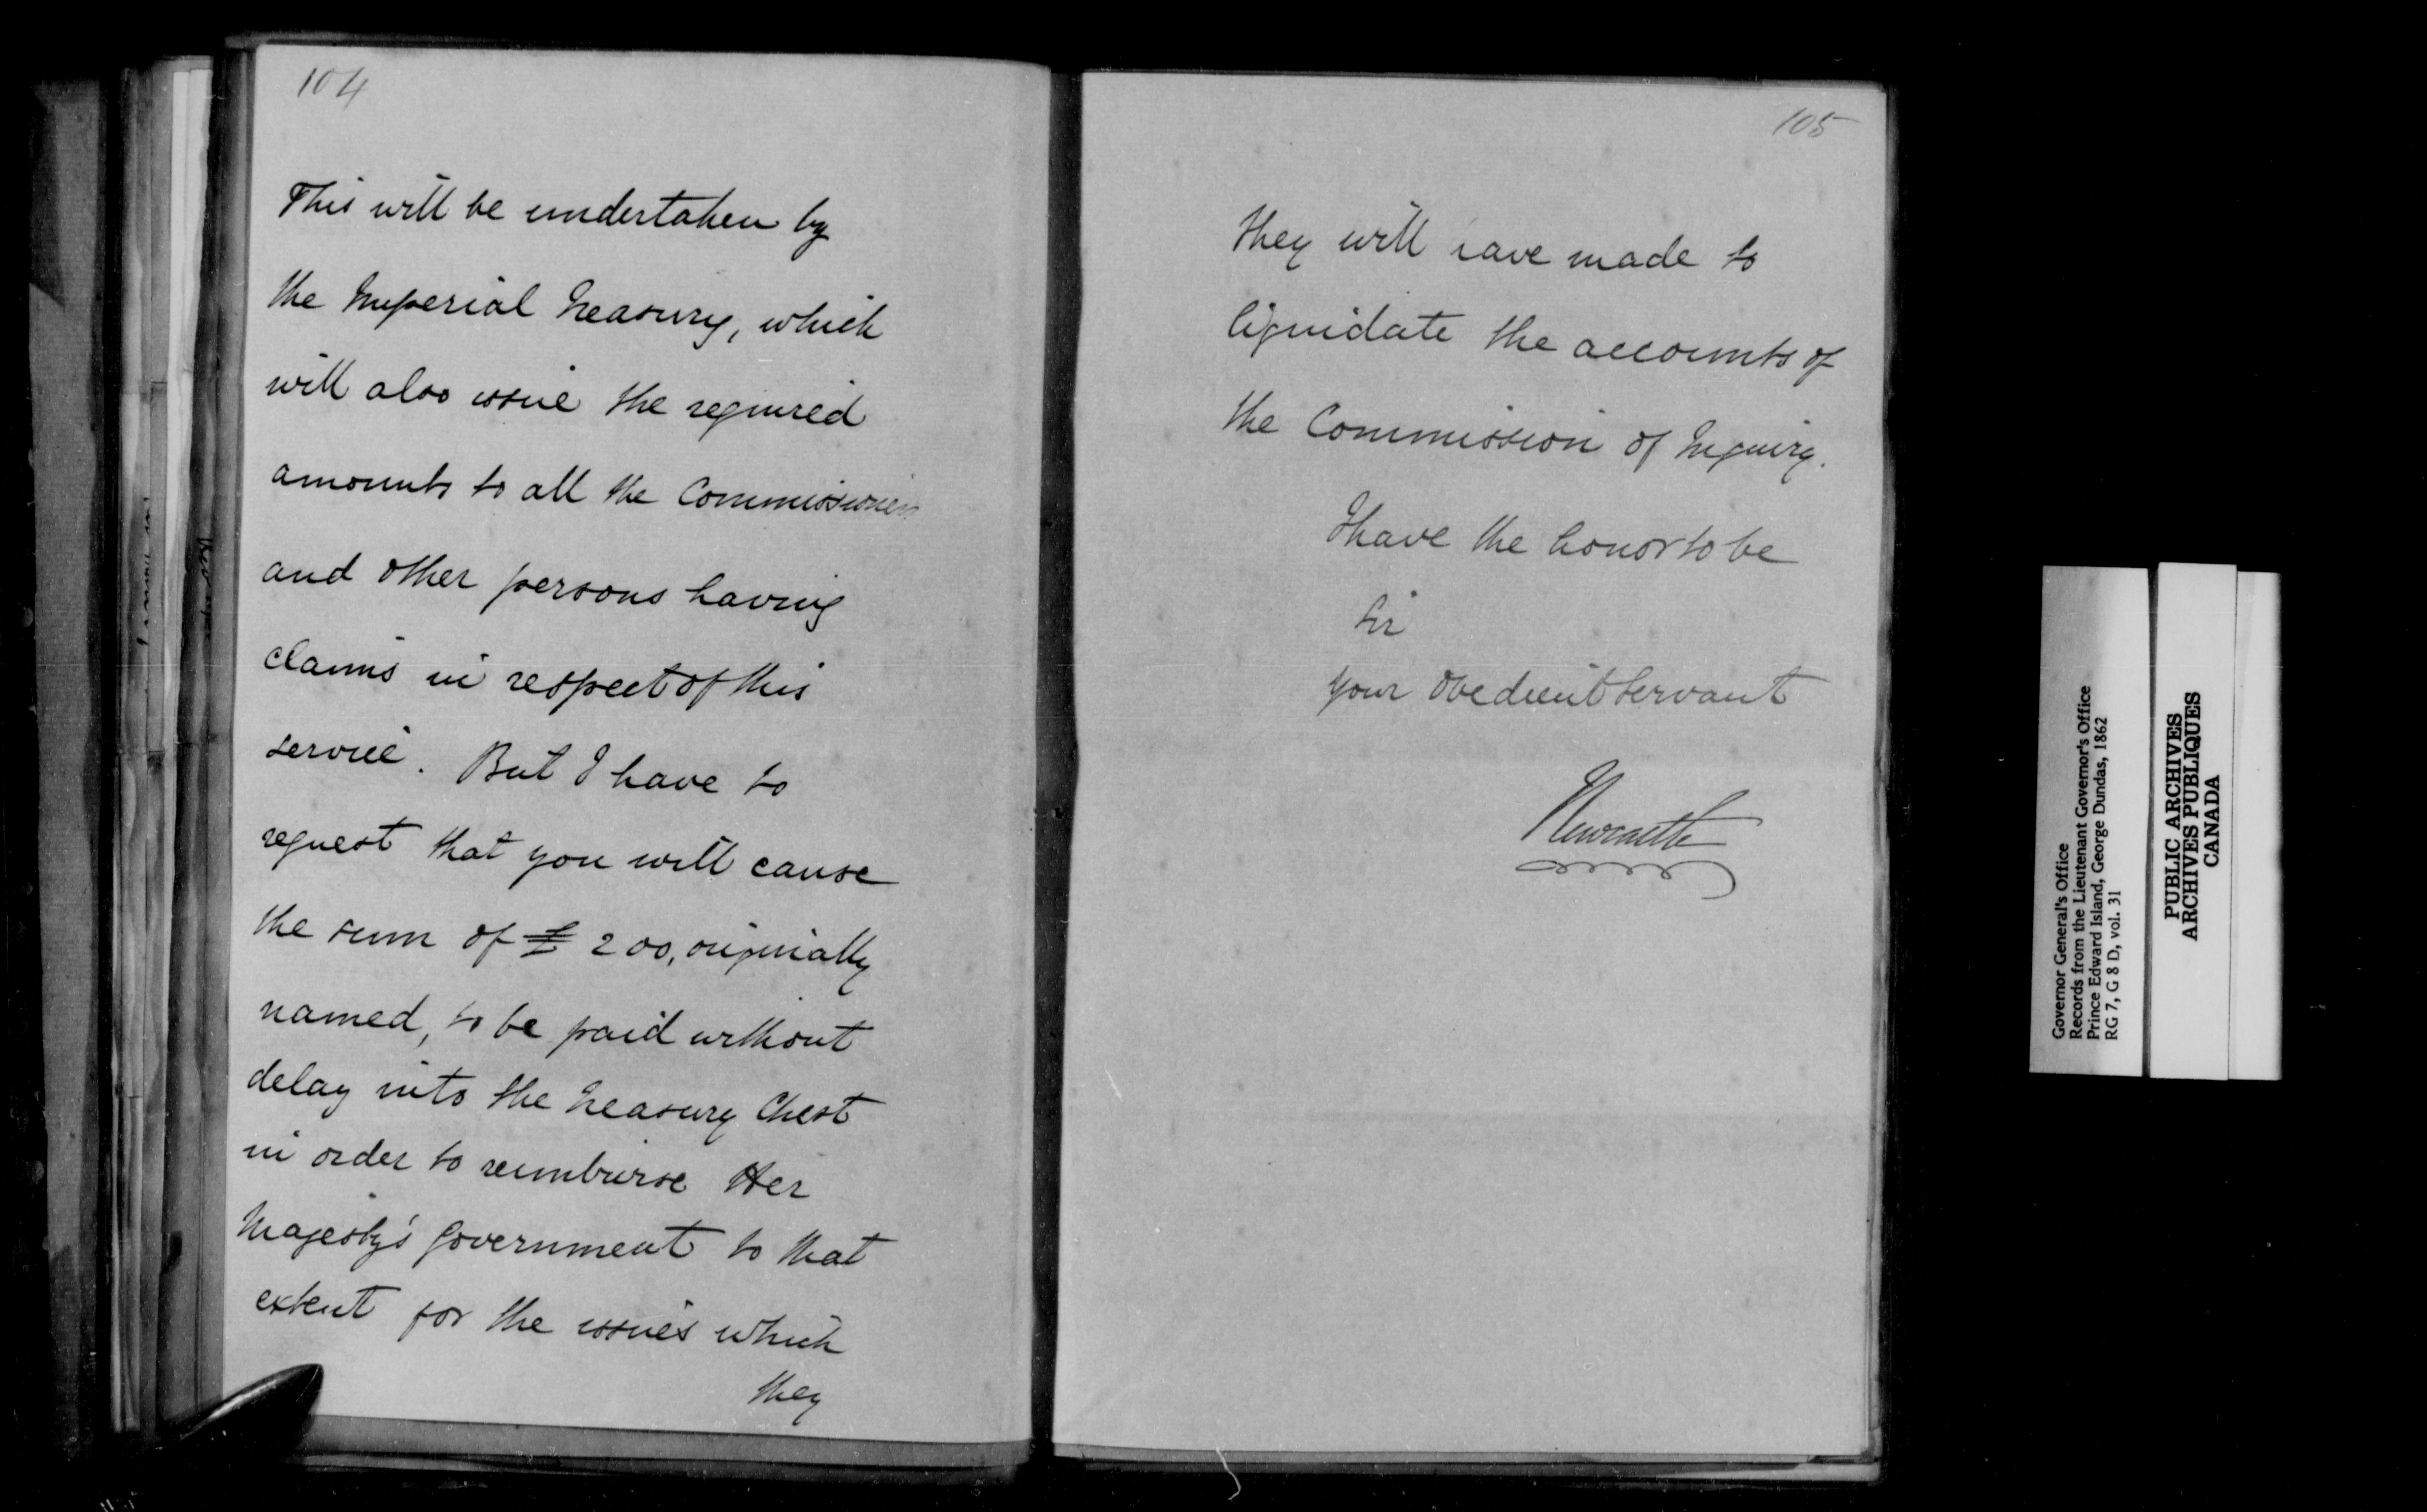 104
This will be undertaken by
the Imperial Treasury, which
will also issue the required
amounts to all the Commissioners
and other persons having
claims in respect of this
service. But I have to
request that you will cause
the sum of £200, originally
named, to be paid without
delay into the Treasury Chest
in order to reimburse Her
Majesty's Government to that
extent for the issues which
they
105
they will have made to
liquidate the accounts of
the Commission of Inquiry.
I have the honor to be
Sir
your obedient servant
Newcastle
Governor General's Office
Records from the Lieutenant Governor's Office
Prince Edward Island, George Dundas, 1862
RG 7, G 8 D, vol. 31
PUBLIC ARCHIVES
ARCHIVES PUBLIQUES
CANADA